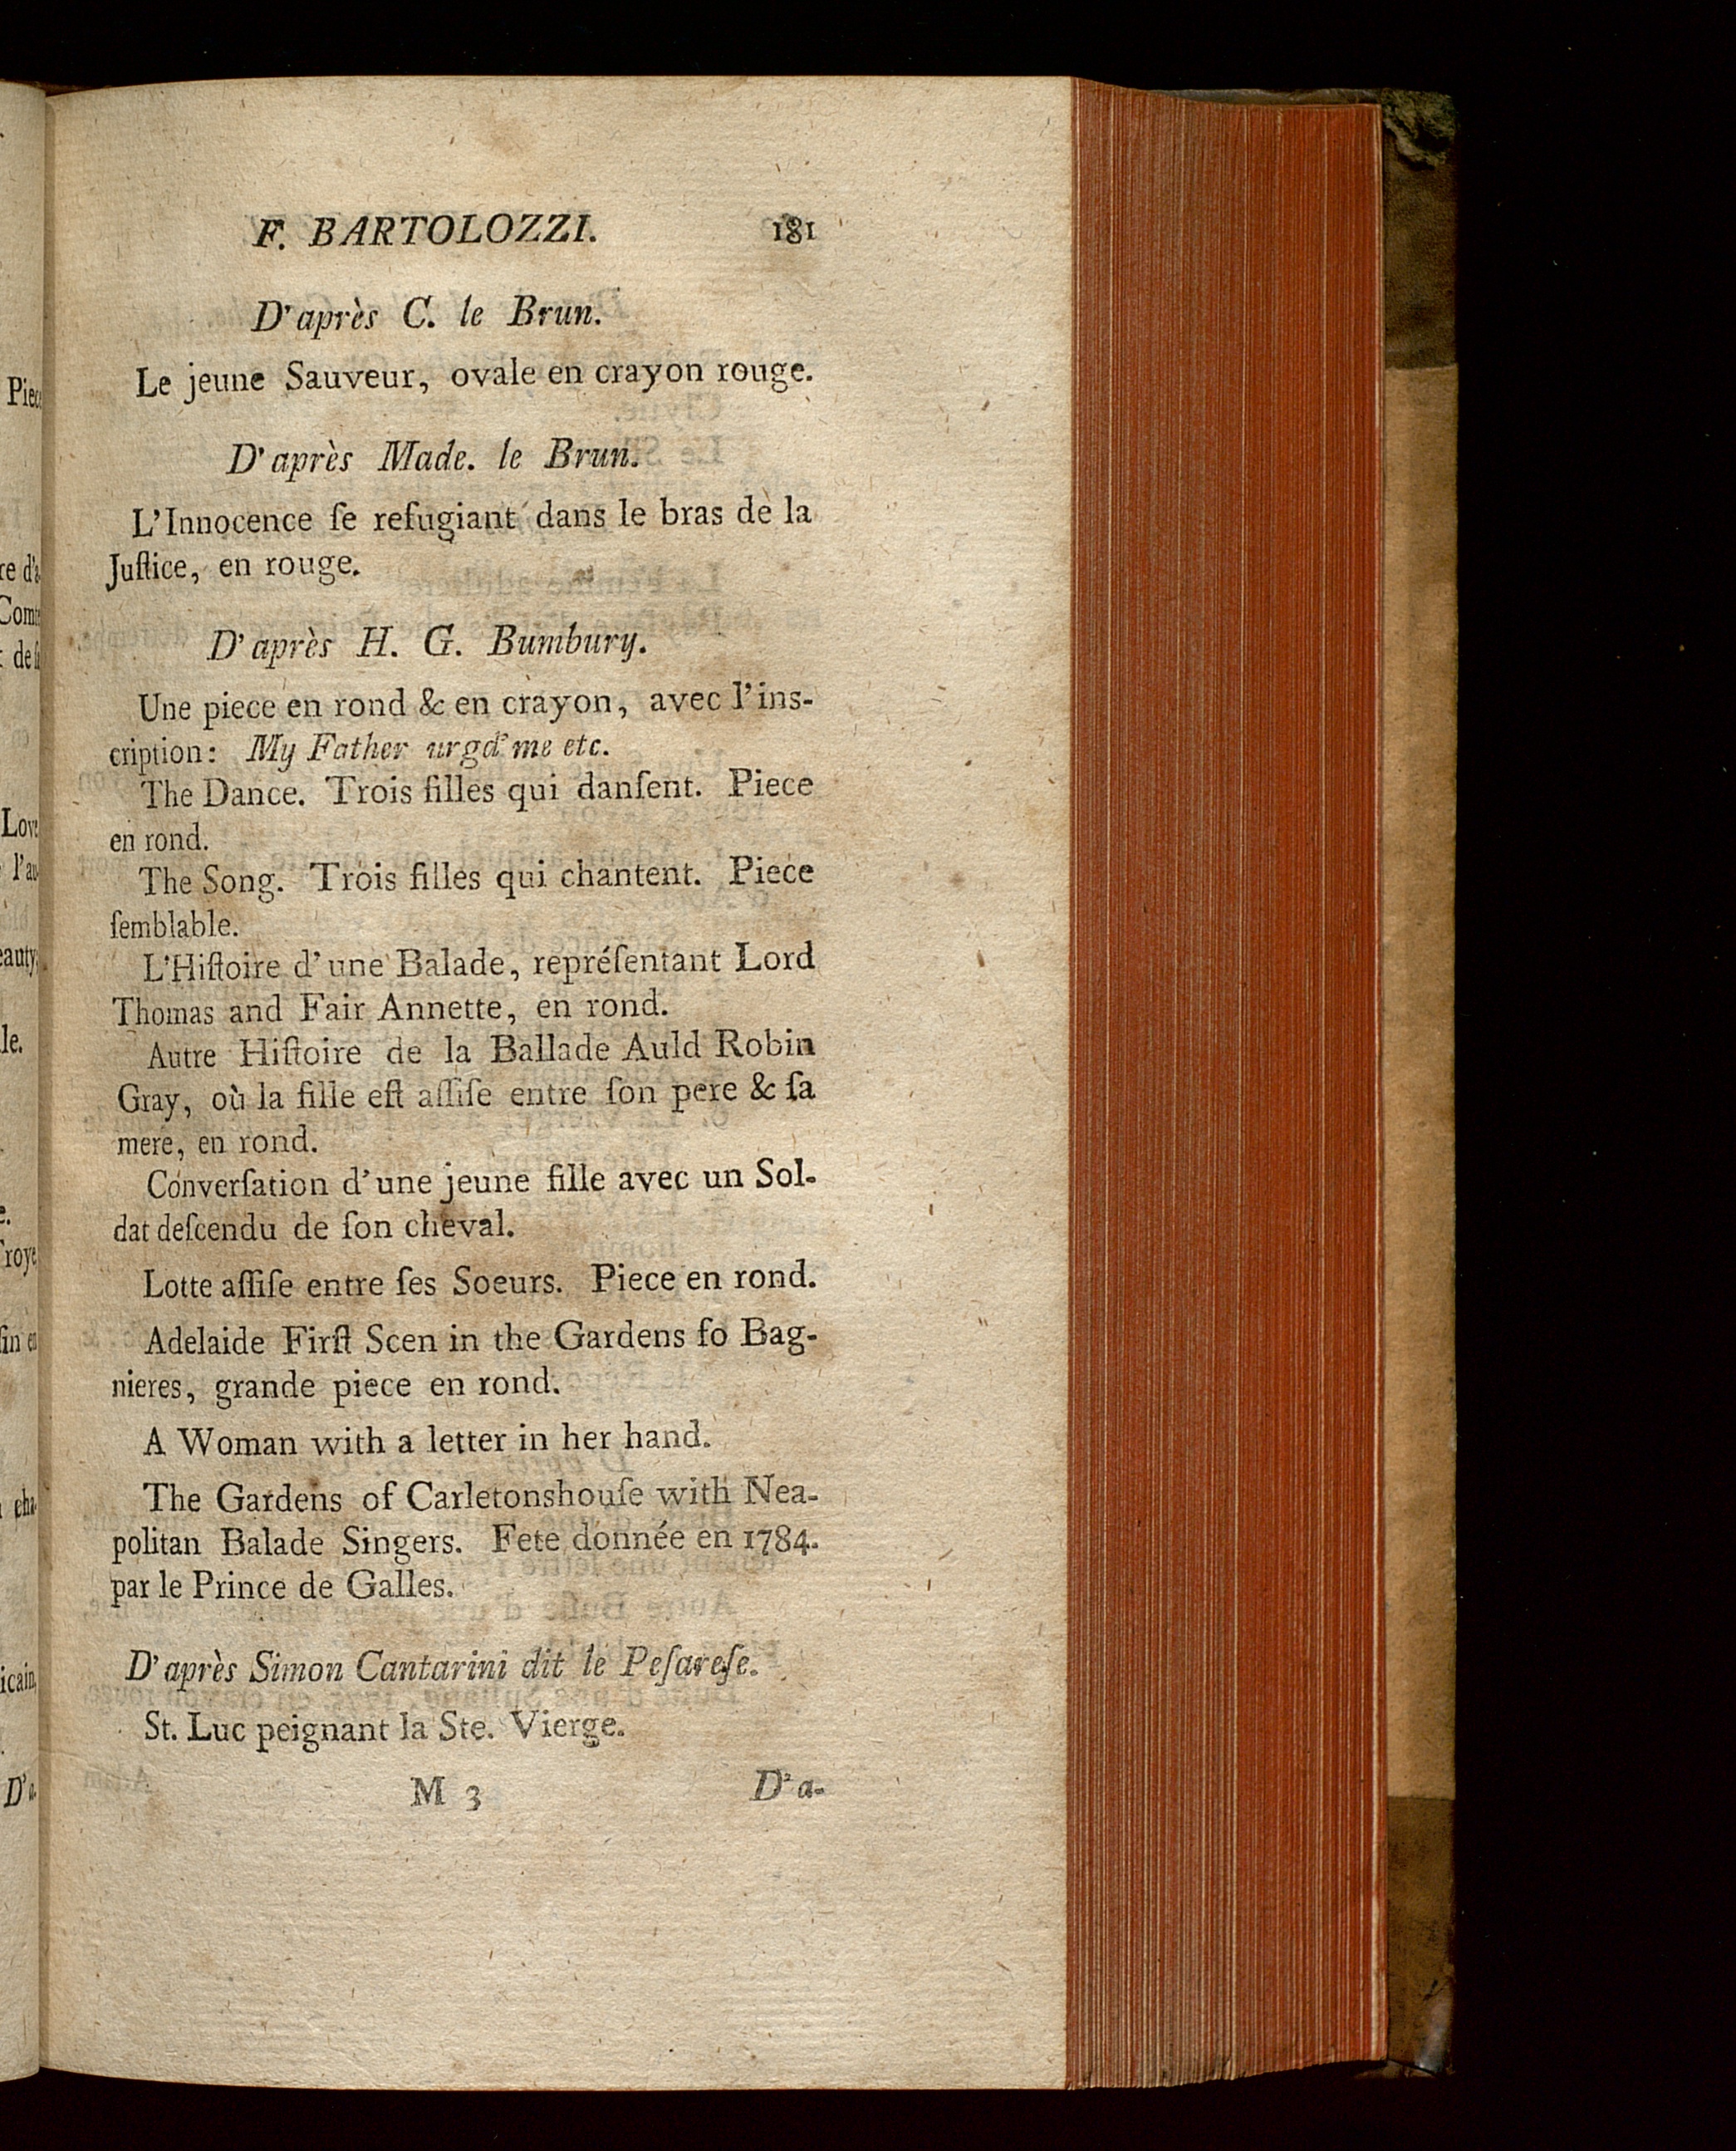 F. BARTOLOZZI. 181
D'après C. le Brun.
Le jeune Sauveur, ovale en crayon rouge.
D'après Made. le Brun.
L'Innocence ſe refugiant dans le bras de la
Juſtice, en rouge.
D'après H. G. Bumbury.
Une piece en rond & en crayon, avec l'ins-
cription: My Father urgd' me etc.
The Dance. Trois filles qui danſent. Piece
en rond.
The Song. Trois filles qui chantent. Piece
ſemblable.
L'Hiſtoire d'une Balade, repréſentant Lord
Thomas and Fair Annette, en rond.
Autre Hiſtoire de la Ballade Auld Robin
Gray, où la fille eſt aſſiſe entre ſon pere & ſa
mere, en rond.
Converſation d'une jeune fille avec un Sol-
dat deſcendu de ſon cheval.
Lotte aſſiſe entre ſes Soeurs. Piece en rond.
Adelaide Firſt Scen in the Gardens fo Bag-
nieres, grande piece en rond.
A Woman with a letter in her hand.
The Gardens of Carletonshouſe with Nea-
politan Balade Singers. Fete donnée en 1784.
par le Prince de Galles.
D'après Simon Cantarini dit le Peſareſe.
St. Luc peignant la Ste. Vierge.
M 3 D'a-